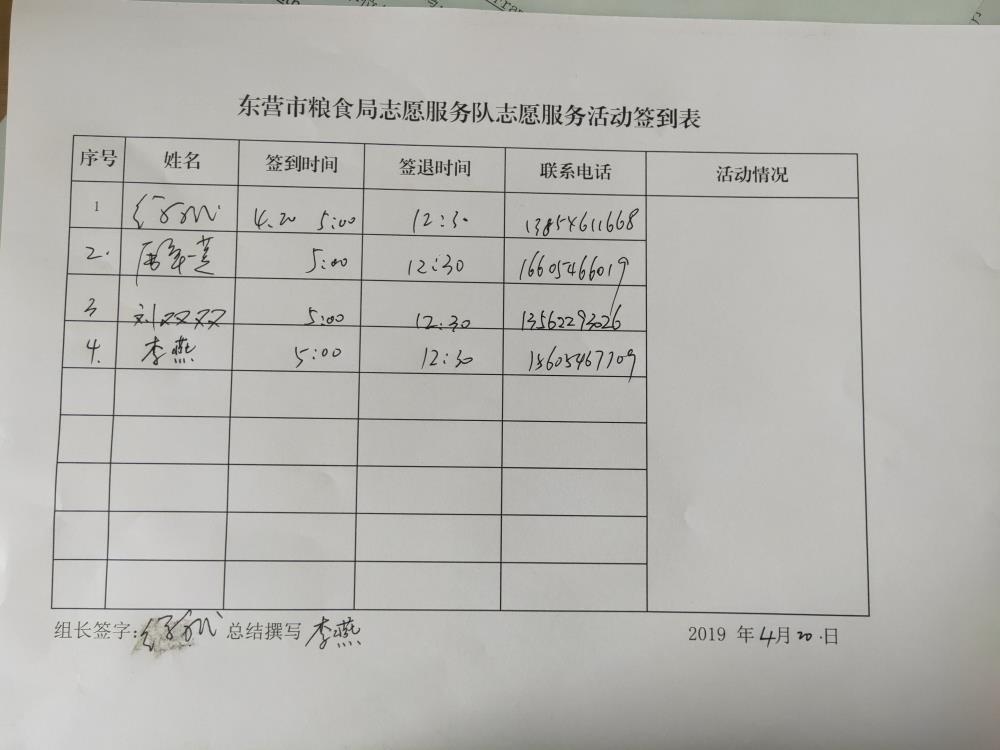 东营市粮食局志愿服务队志愿服务活动签到表
序号 姓名 签到时间 签退时间 联系电话 活动情况
1 4.20 5:00 12:30 13854611668
2. 5:00 12:30 16605466019
3 刘双双 5:00 12:30 13562293026
4. 李燕 5:00 12:30 15605467709
组长签字: 总结撰写 李燕 2019 年 4月 20 日